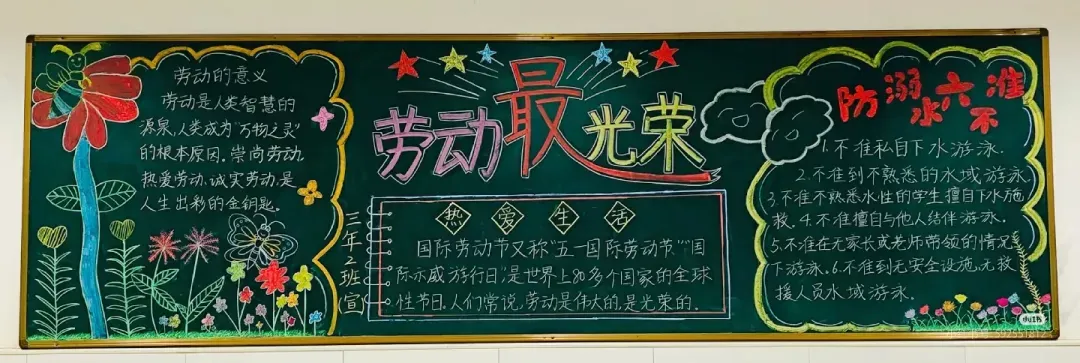 劳动的意义
劳动是人类智慧的
源泉,人类成为"万物之灵"
的根本原因。崇尚劳动,
热爱劳动,诚实劳动,是
人生出彩的金钥匙。
三年2班宣
劳动最光荣
热爱生活
国际劳动节又称"五一国际劳动节""国
际示威游行日",是世界上80多个国家的全球
性节日。人们常说,劳动是伟大的,是光荣的.
防溺水六不准
1.不准私自下水游泳.
2.不准到不熟悉的水域游泳
3.不准不熟悉水性的学生擅自下水施
救。4.不准擅自与他人结伴游泳。
5.不准在无家长或老师带领的情况
下游泳。6.不准到无安全设施,无救
援人员水域游泳.
小红书